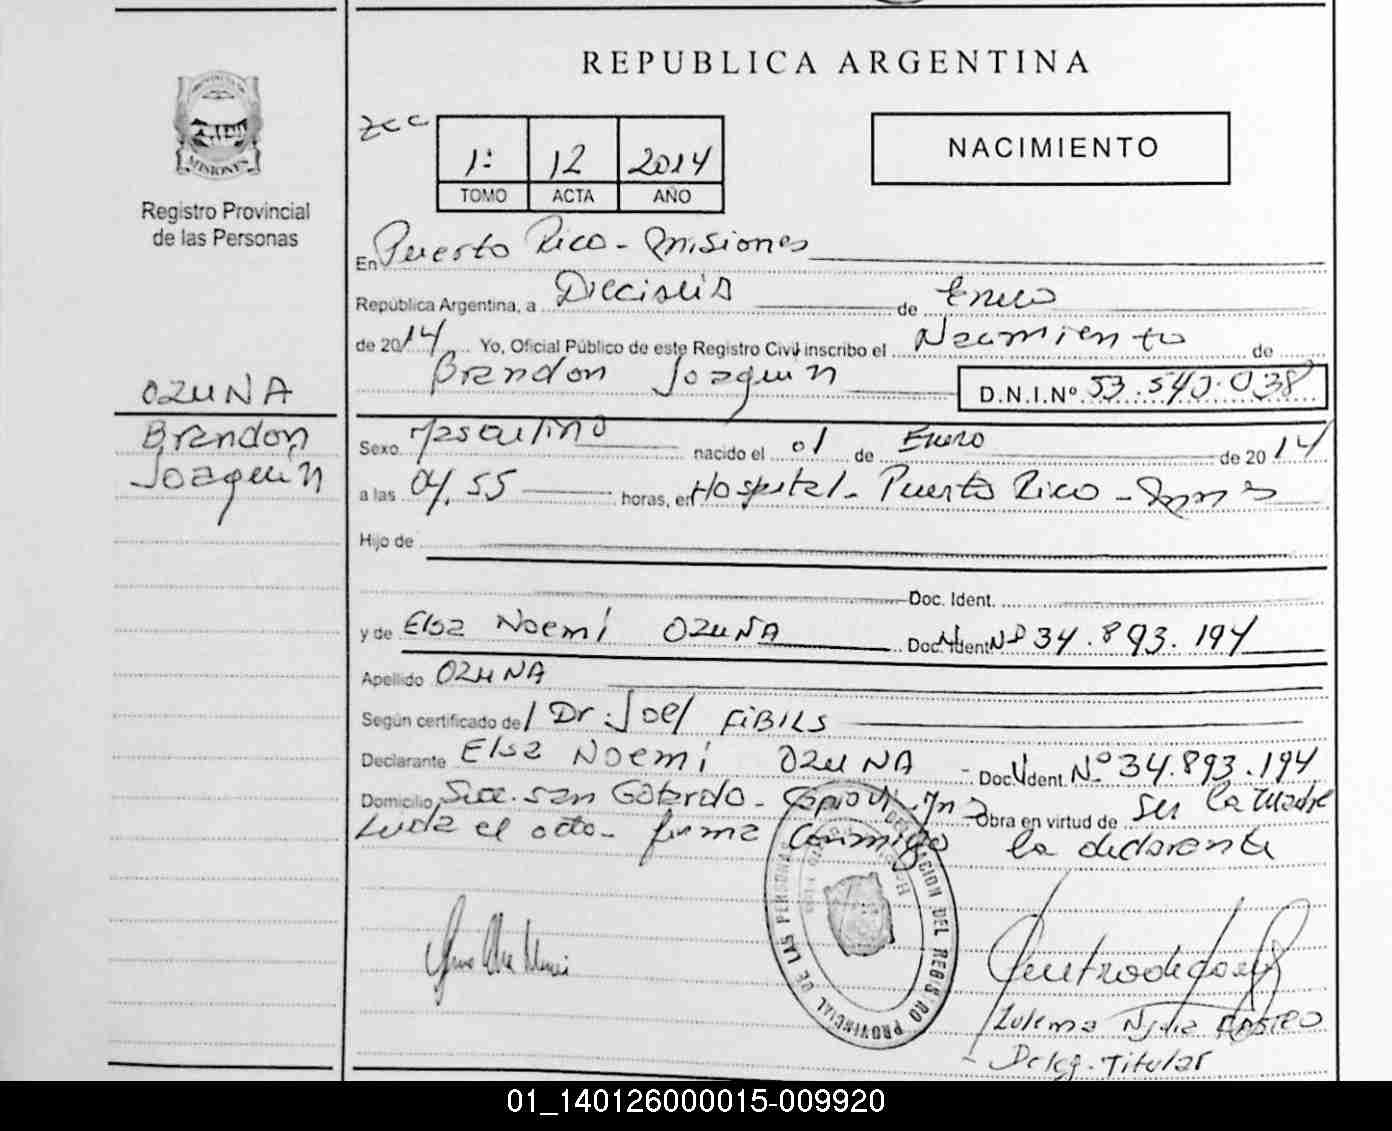 REPUBLICA ARGENTINA
MISIONES
Registro Provincial
de las Personas
1º 12 2014
TOMO ACTA AÑO
NACIMIENTO
En Puerto Rico - Misiones
República Argentina, a Dieciseis de Enero
de 2014 Yo, Oficial Público de este Registro Civil inscribo el Nacimiento de
Brandon Joaquin D.N.I.Nº 53.540.038
OZUNA
Brandon
Joaquin
Sexo Masculino nacido el 01 de Enero de 2014
a las 04.55 horas, en Hospital - Puerto Rico - Mnes
Hijo de
Doc. Ident.
y de Elsa Noemi OZUNA Doc. Ident Nº 34.893.194
Apellido OZUNA
Según certificado de / Dr. Joel FIBILS
Declarante Elsa Noemi OZUNA - Doc. Ident. Nº 34.893.194
Domicilio San Gotardo - Obra en virtud de ser la madre
el acto - firma conmigo la declarante
DELEGACION DEL REGISTRO PROVINCIAL DE LAS PERSONAS
Zulema
Deleg. Titular
01_140126000015-009920